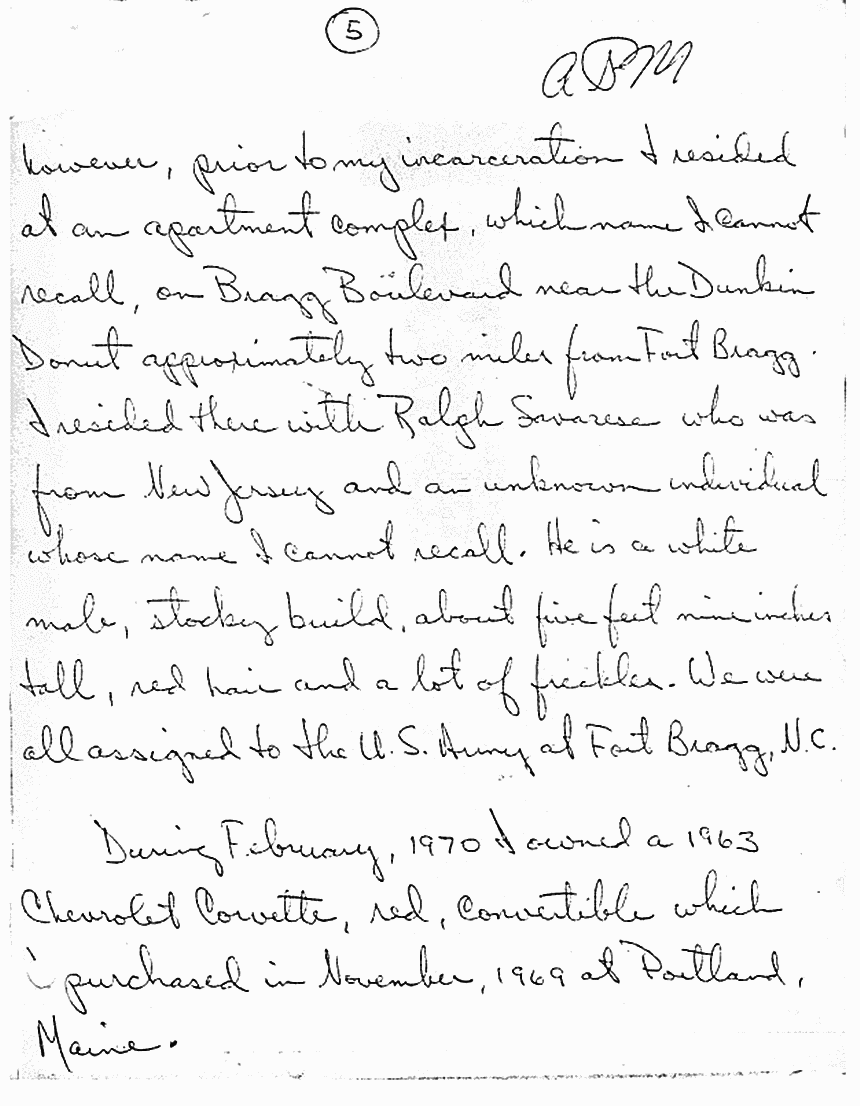 5
ABM
however, prior to my incarceration I resided
at an apartment complex, which name I cannot
recall, on Bragg Boulevard near the Dunkin
Donut approximately two miles from Fort Bragg.
I resided there with Ralph Savarese who was
from New Jersey and an unknown individual
whose name I cannot recall. He is a white
male, stockey build, about five feet nine inches
tall, red hair and a lot of freckles. We were
all assigned to the U.S. Army at Fort Bragg, N.C.
During February, 1970 I owned a 1963
Chevrolet Corvette, red, convertible which
I purchased in November, 1969 at Portland,
Maine.